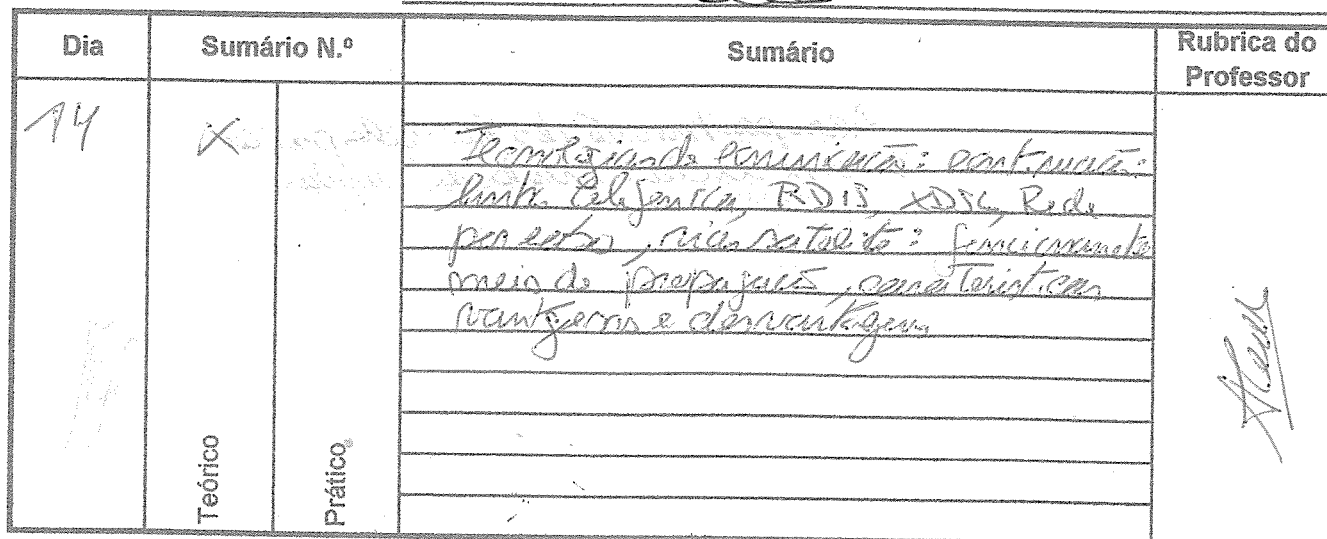 Dia
Sumário N.º
Sumário
Rubrica do
Professor
14
X
Tecnologias de comunicação: continuação:
linha telefónica, RDIS, XDSL, Rede
por cabo, via satélite: funcionamento
meio de propagação, características
vantagens e desvantagens
Teórico
Prático